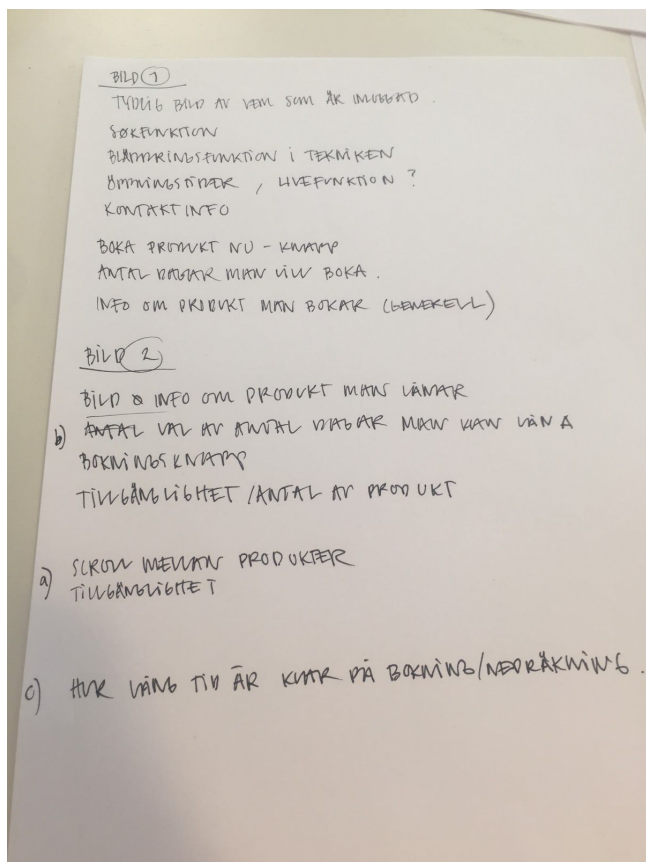 BILD 1
TYDLIG BILD AV VEM SOM ÄR INLOGGAD.
SØKFUNKTION
BLÄDDRINGSFUNKTION I TEKNIKEN
ÖPPNINGSTIDER, LIVEFUNKTION?
KONTAKTINFO
BOKA PRODUKT NU - KNAPP
ANTAL DAGAR MAN VILL BOKA.
INFO OM PRODUKT MAN BOKAR (GENERELL)
BILD 2
BILD & INFO OM PRODUKT MAN LÅNAR
b) ANTAL VAL AV ANTAL DAGAR MAN KAN LÅNA
BOKNINGSKNAPP
TILLGÄNGLIGHET / ANTAL AV PRODUKT
a) SCROLL MELLAN PRODUKTER
TILLGÄNGLIGHET
c) HUR LÅNG TID ÄR KVAR PÅ BOKNING/NEDRÄKNING.